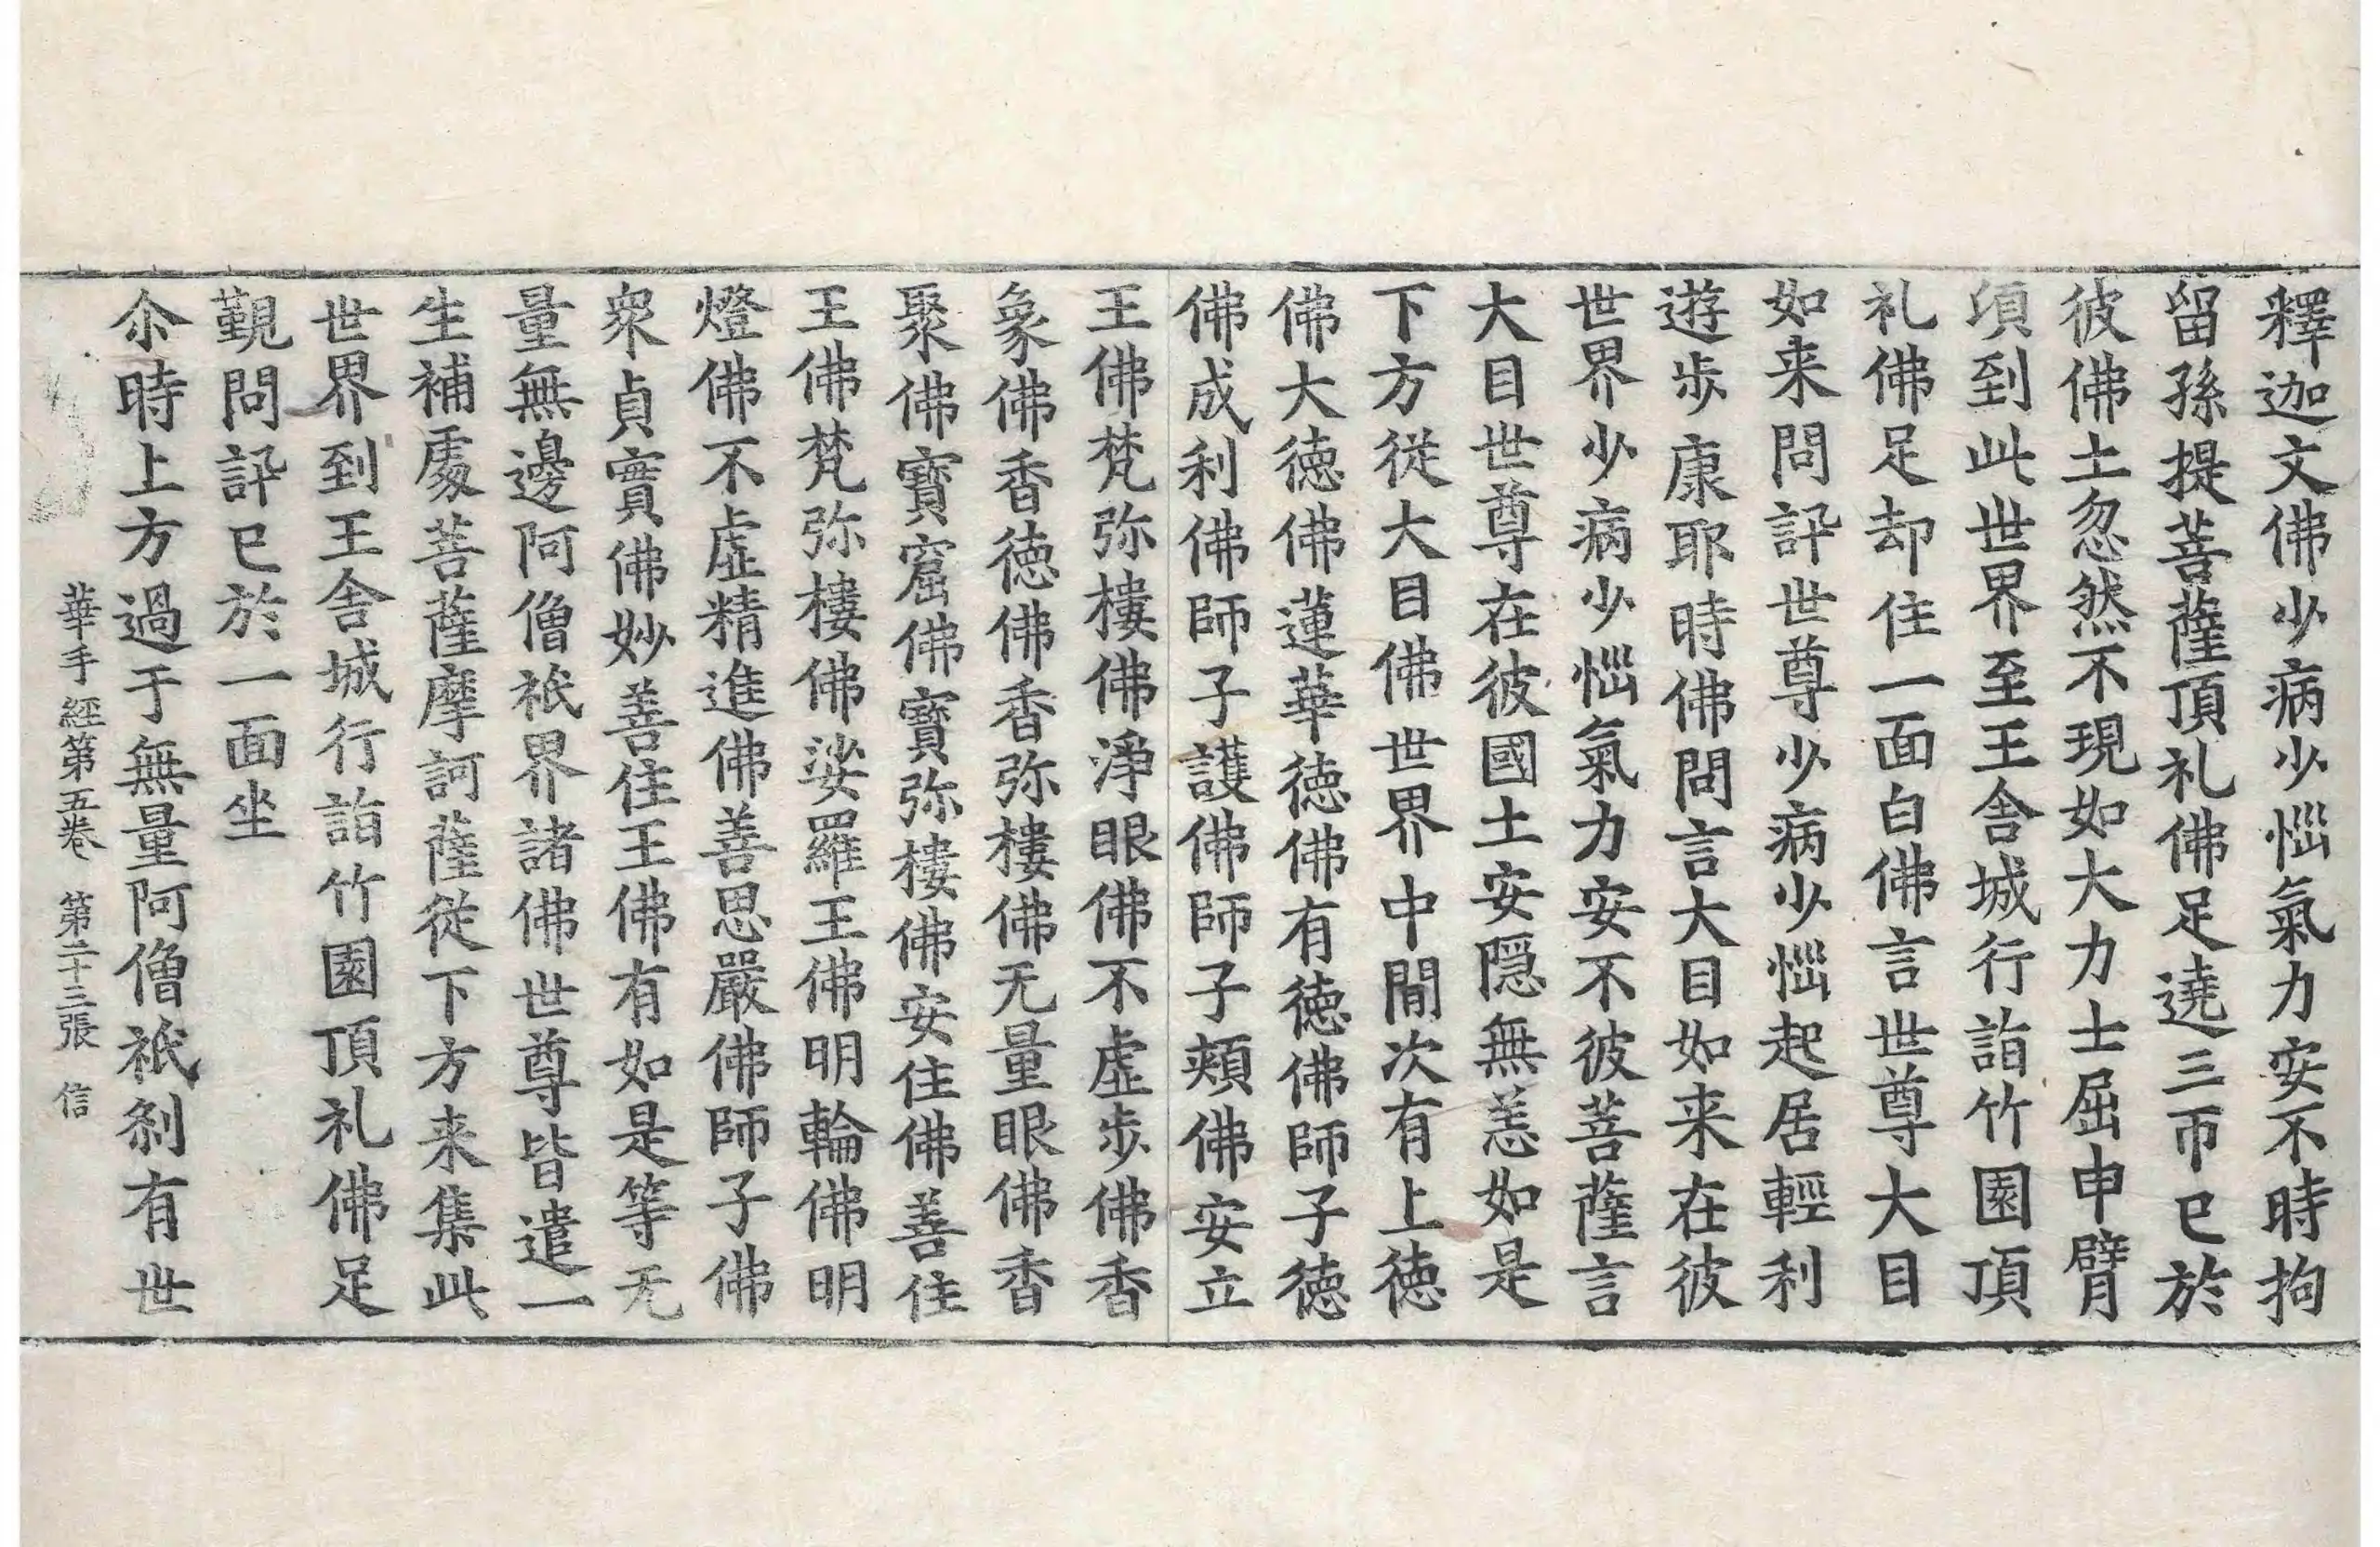 釋迦文佛少病少惱氣力安不時拘
留孫提菩薩頂礼佛足遶三帀已於
彼佛土忽然不現如大力士屈申臂
頃到此世界至王舍城行詣竹園頂
礼佛足却住一面白佛言世尊大目
如来問訊世尊少病少惱起居輕利
遊步康耶時佛問言大目如来在彼
世界少病少惱氣力安不彼菩薩言
大目世尊在彼國土安隱無恙如是
下方從大目佛世界中間次有上德
佛大德佛蓮華德佛有德佛師子德
佛成利佛師子護佛師子頰佛安立
王佛梵弥樓佛淨眼佛不虛步佛香
象佛香德佛香弥樓佛无量眼佛香
聚佛寶窟佛寶弥樓佛安住佛善住
王佛梵弥樓佛娑羅王佛明輪佛明
燈佛不虛精進佛善思嚴佛師子佛
衆貞實佛妙善住王佛有如是等无
量無邊阿僧祇界諸佛世尊皆遣一
生補處菩薩摩訶薩從下方来集此
世界到王舍城行詣竹園頂礼佛足
覲問訊已於一面坐
尒時上方過于無量阿僧祇剎有世
華手經第五卷　第二十三張　信